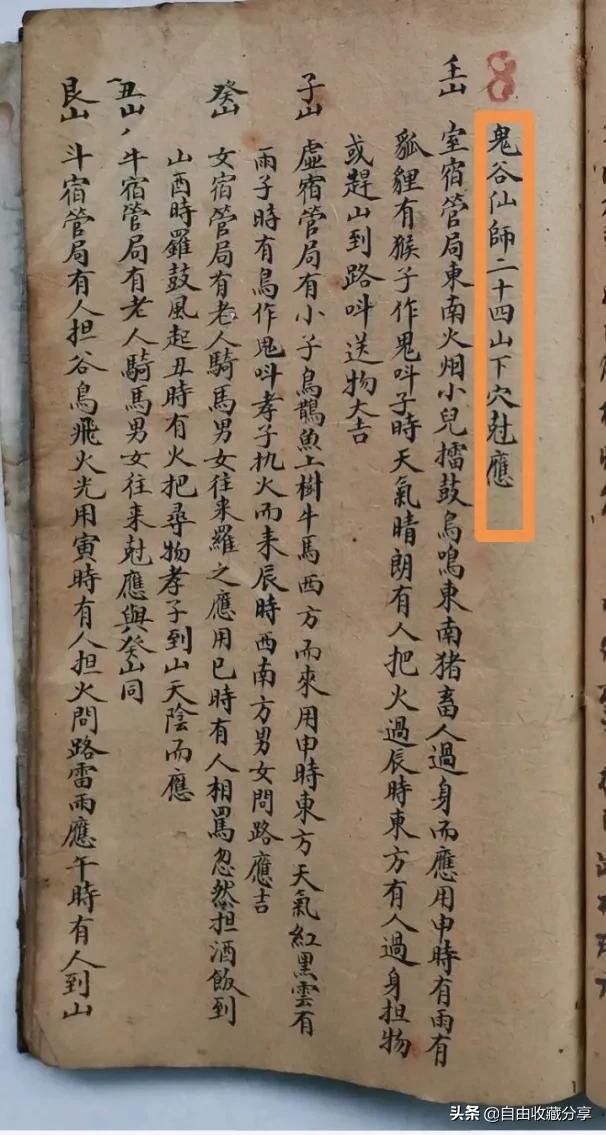 8
鬼谷仙師二十四山下穴尅應
壬山 室宿管局東南火烟小兒擂鼓鳥鳴東南猪畜人過身而應用申時有雨有
狐貍有猴子作鬼呌子時天氣晴朗有人把火過辰時東方有人過身担物
或趕山到路呌送物大吉
子山 虛宿管局有小子鳥鵲魚上樹牛馬西方而來用申時東方天氣紅黑雲有
雨子時有鳥作鬼呌孝子执火而来辰時西南方男女問路應吉
癸山 女宿管局有老人騎馬男女往来羅之應用巳時有人相罵忽然担酒飯到
山酉時羅鼓風起丑時有火把尋物孝子到山天陰而應
丑山 牛宿管局有老人騎馬男女往来尅應與癸山同
艮山 斗宿管局有人担谷鳥飛火光用寅時有人担火問路雷雨應午時有人到山
头条 @自由收藏分享